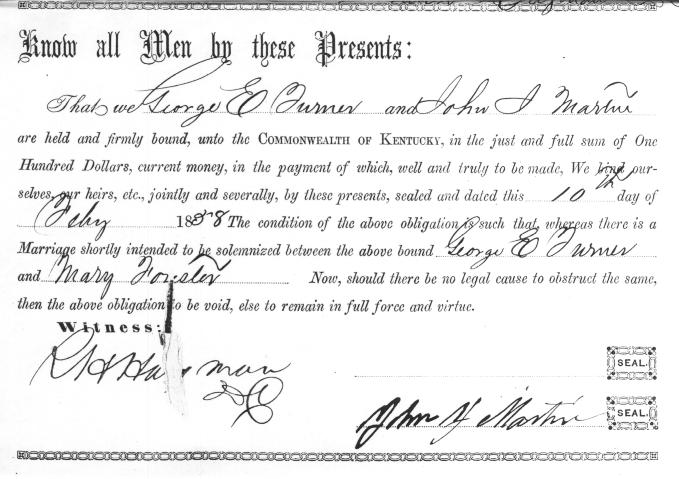 Know all Men by these Presents:
That we George E Turner and John J Martin
are held and firmly bound, unto the COMMONWEALTH OF KENTUCKY, in the just and full sum of One
Hundred Dollars, current money, in the payment of which, well and truly to be made, We bind our-
selves, our heirs, etc., jointly and severally, by these presents, sealed and dated this 10th day of
Feby 188 The condition of the above obligation is such that, whereas there is a
Marriage shortly intended to be solemnized between the above bound George E Turner
and Mary Forester Now, should there be no legal cause to obstruct the same,
then the above obligation to be void, else to remain in full force and virtue.
Witness:
SEAL.
John J Martin SEAL.